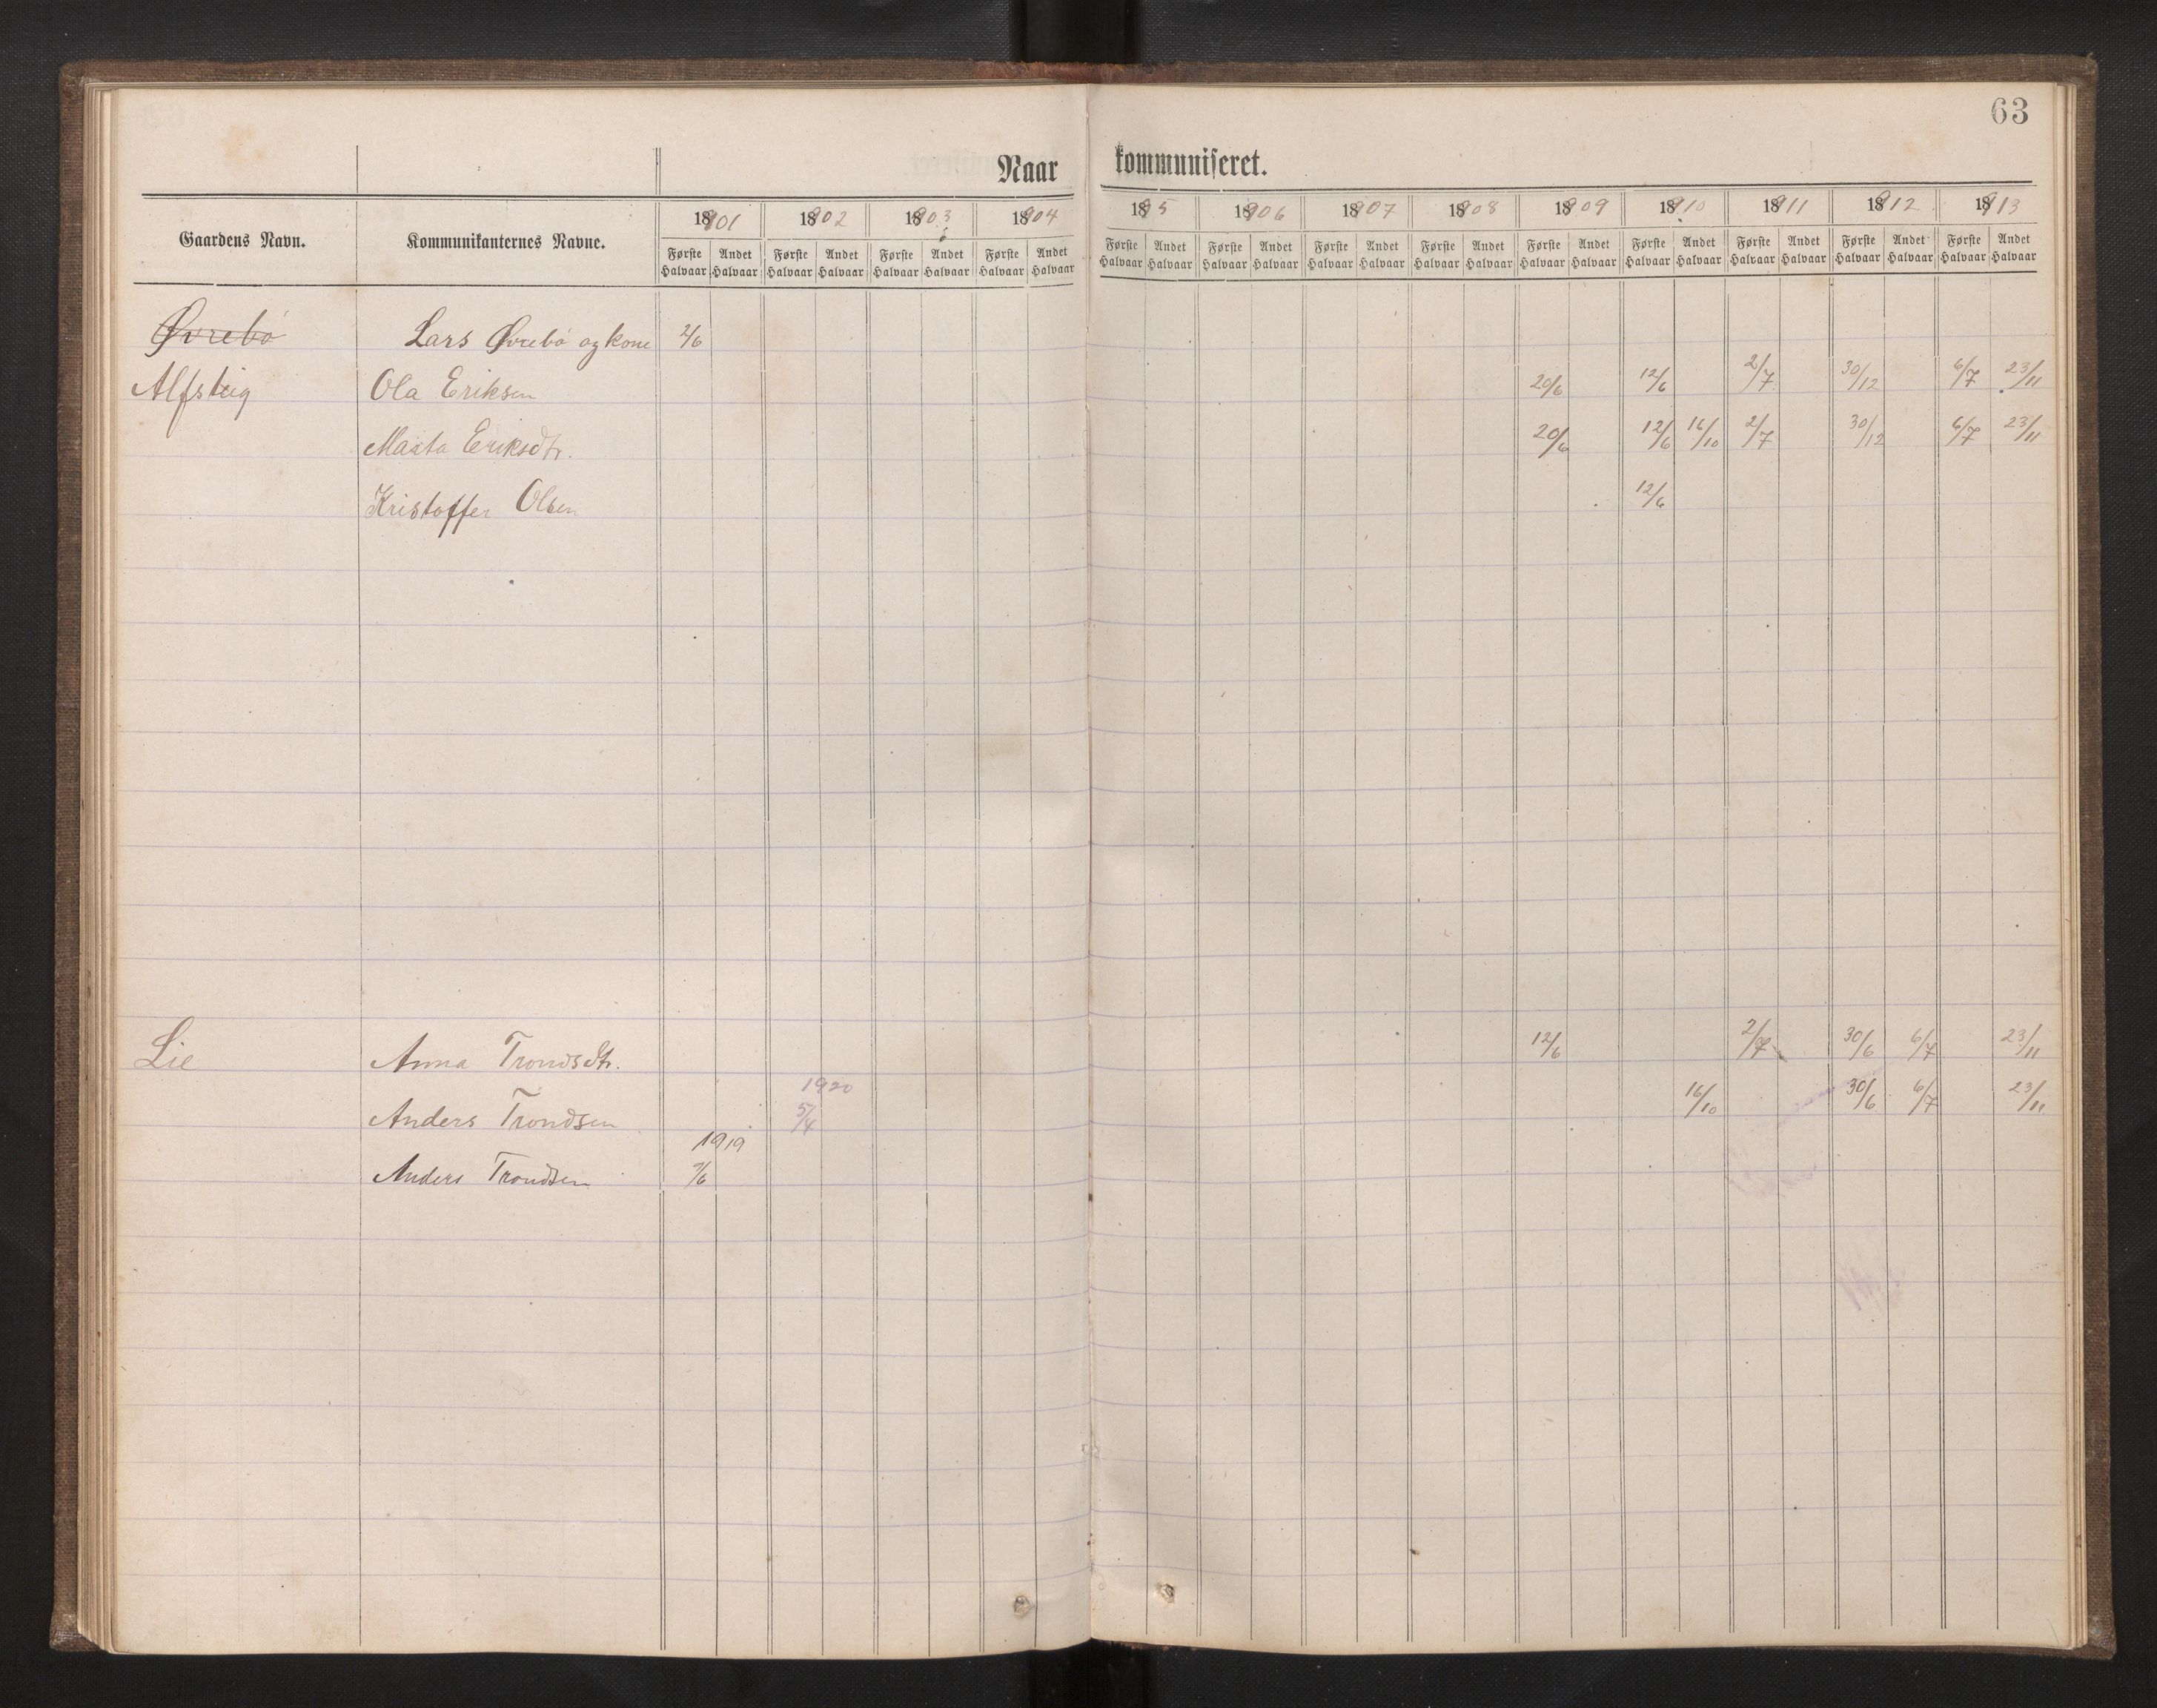 63
Naar kommuniseret.
Gaardens Navn. Kommunikanternes Navne. 1901 1902 1903 1904 195 1906 1907 1908 1909 1910 1911 1912 1913
Første Halvaar Andet Halvaar Første Halvaar Andet Halvaar Første Halvaar Andet Halvaar Første Halvaar Andet Halvaar Første Halvaar Andet Halvaar Første Halvaar Andet Halvaar Første Halvaar Andet Halvaar Første Halvaar Andet Halvaar Første Halvaar Andet Halvaar Første Halvaar Andet Halvaar Første Halvaar Andet Halvaar Første Halvaar Andet Halvaar Første Halvaar Andet Halvaar
Øvrebø Lars Øvrebø og kone 2/6
Alfsteig Ola Eriksen 20/6 12/6 2/7 30/12 6/7 23/11
Marta Eriksdtr. 20/6 12/6 16/10 2/7 30/12 6/7 23/11
Kristoffer Olsen 12/6
Lie Anna Trondsdtr. 12/6 2/7 30/6 6/7 23/11
1920
Anders Trondsen 5/4 16/10 30/6 6/7 23/11
1919
Anders Trondsen 9/6